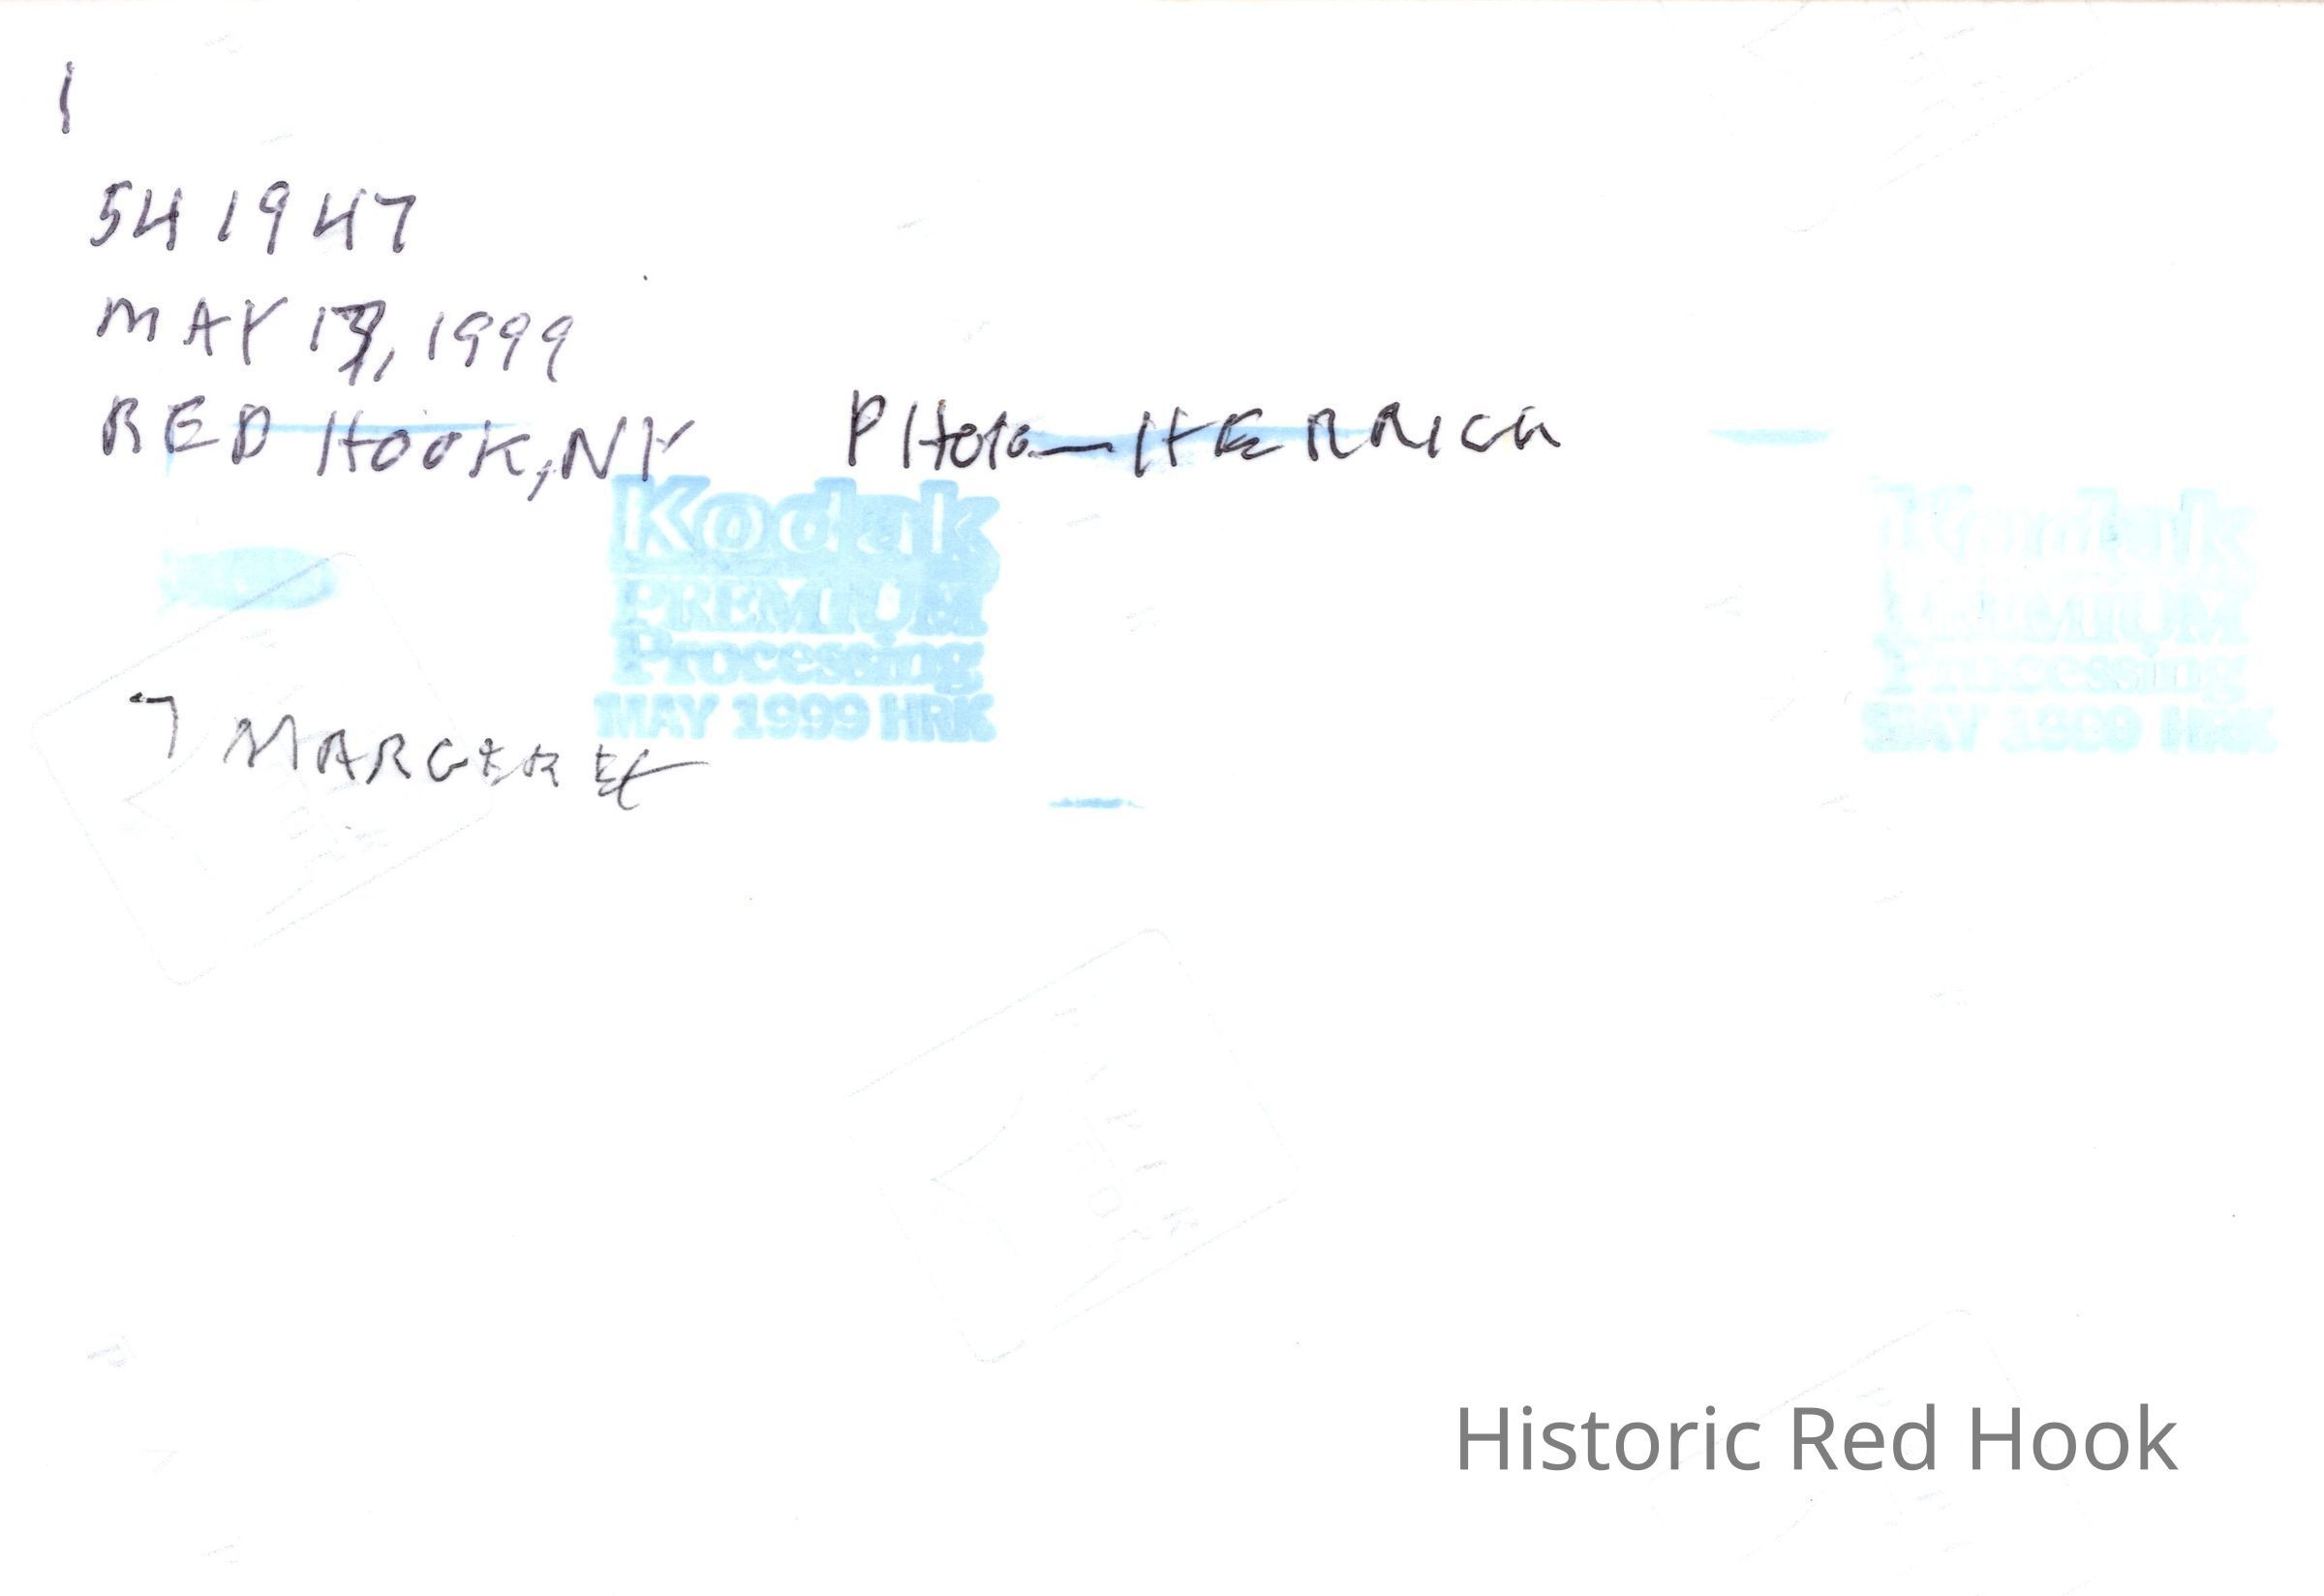 1
541947
MAY 13, 1999
RED HOOK, NY PHOTO—HERRICK
Kodak
PREMIUM
Processing
MAY 1999 HRK
Kodak
PREMIUM
Processing
MAY 1999 HRK
7 MARGER
Historic Red Hook